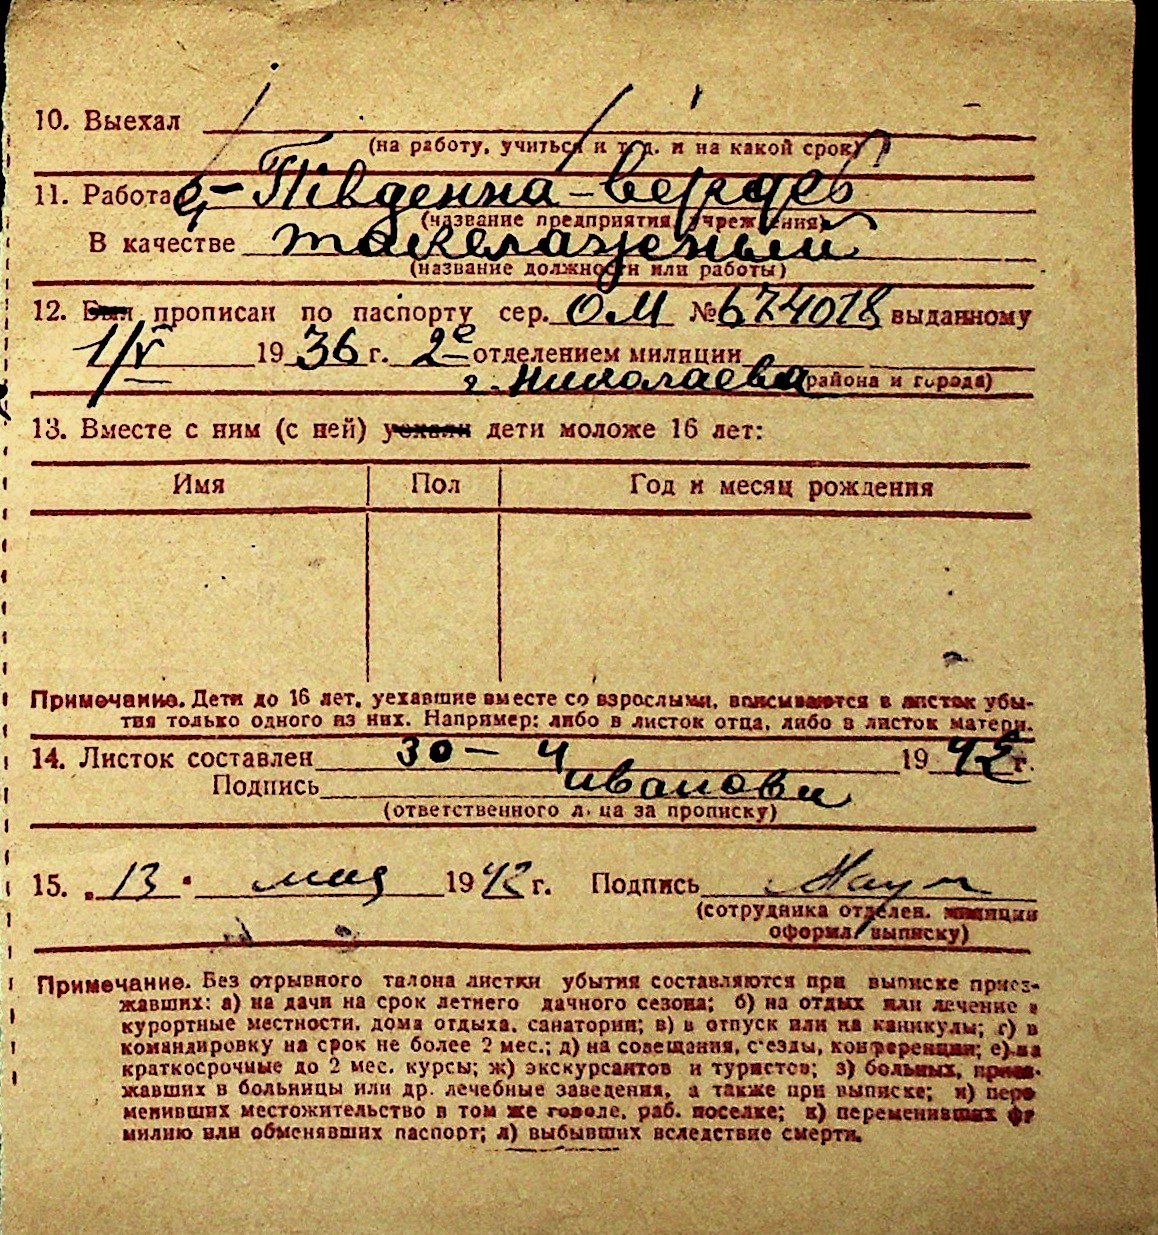 10. Выехал
(на работу, учиться и т. д. и на какой срок)
11. Работа Південна-верфь
(название предприятия, учреждения)
В качестве такелажный
(название должности или работы)
12. Был прописан по паспорту сер. ОМ № 674018 выданному
1/V 1936 г. 2е отделением милиции
г. Николаева (района и города)
13. Вместе с ним (с ней) уехали дети моложе 16 лет:
Имя Пол Год и месяц рождения
Примечание. Дети до 16 лет, уехавшие вместе со взрослыми, вписываются в листок убы-
тия только одного из них. Например: либо в листок отца, либо в листок матери.
14. Листок составлен 30 — 4 1942 г.
Подпись
(ответственного лица за прописку)
15. „13" мая 1942 г. Подпись
(сотрудника отделен. милиции
оформл. выписку)
Примечание. Без отрывного талона листки убытия составляются при выписке приез-
жавших: а) на дачи на срок летнего дачного сезона; б) на отдых или лечение в
курортные местности, дома отдыха, санатории; в) в отпуск или на каникулы; г) в
командировку на срок не более 2 мес.; д) на совещания, с'езды, конференции; е) на
краткосрочные до 2 мес. курсы; ж) экскурсантов и туристов; з) больных, приез-
жавших в больницы или др. лечебные заведения, а также при выписке; и) пере
менивших местожительство в том же городе, раб. поселке; к) переменивших фа
милию или обменявших паспорт; л) выбывших вследствие смерти.